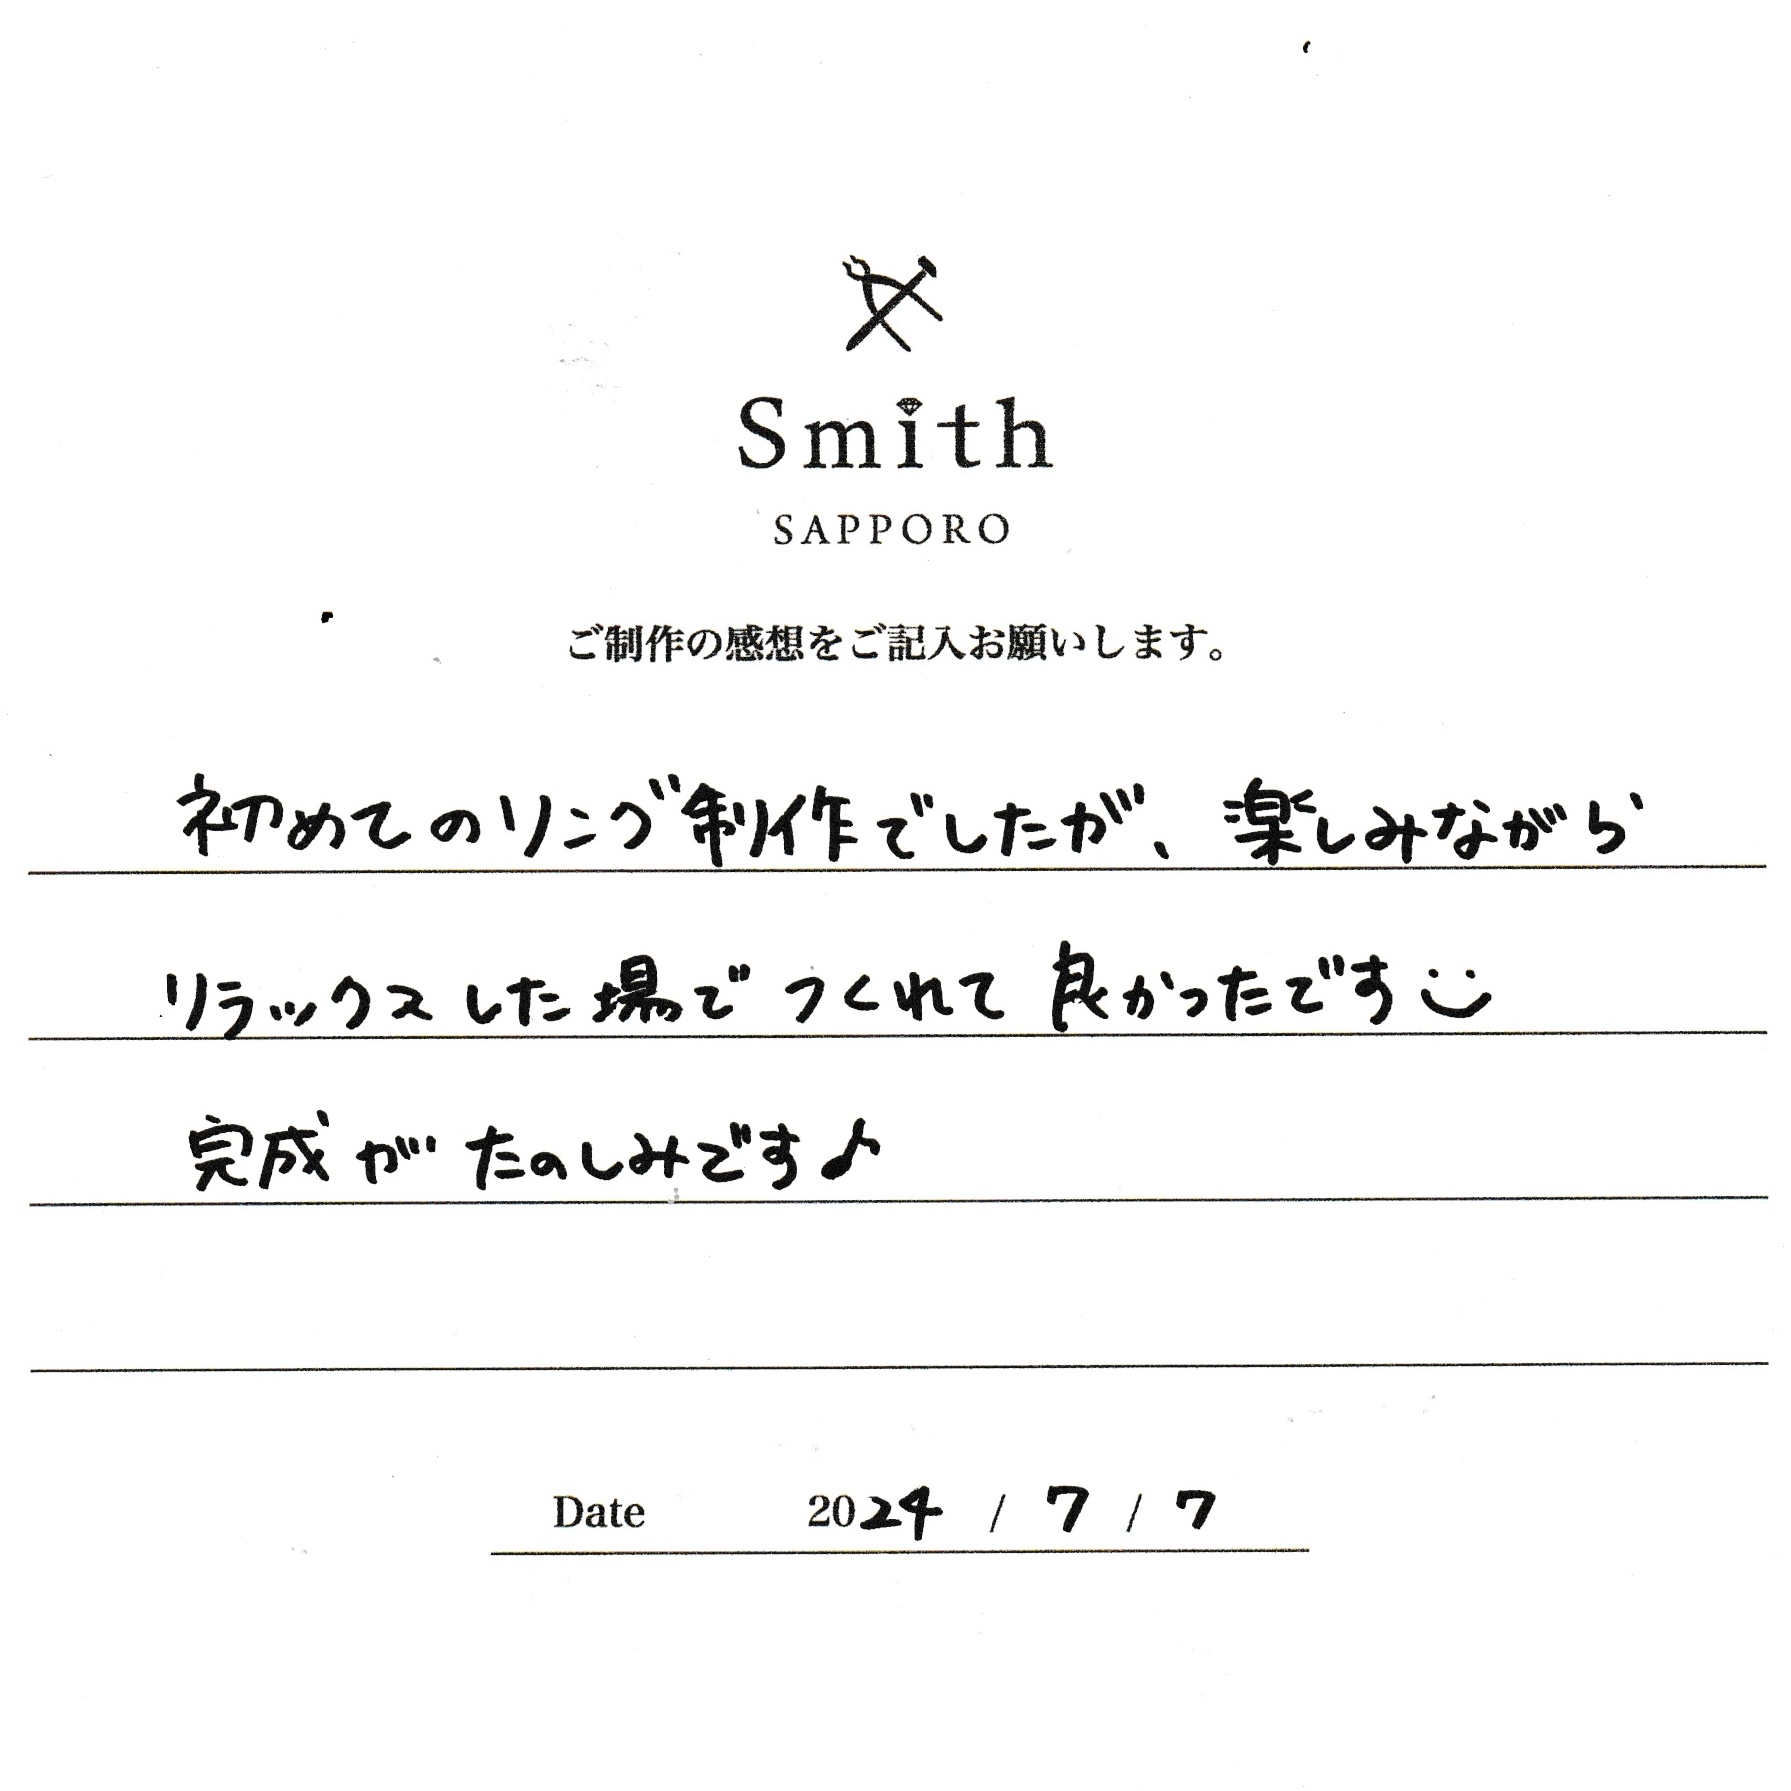 Smith
SAPPORO
ご制作の感想をご記入お願いします。
初めてのリング制作でしたが、楽しみながら
リラックスした場でつくれて良かったです
完成がたのしみです♪
Date 2024 / 7 / 7